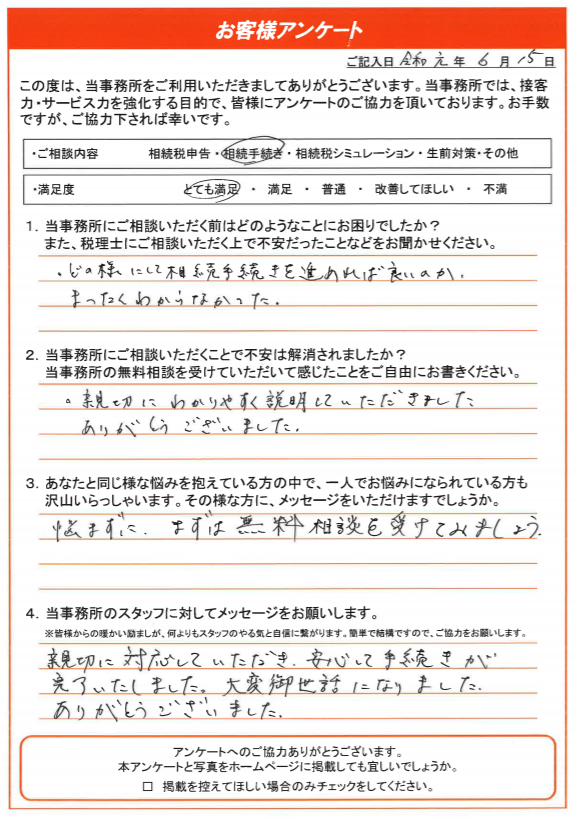 お客様アンケート
ご記入日 令和 元 年 6 月 15 日
この度は、当事務所をご利用いただきましてありがとうございます。当事務所では、接客
力・サービス力を強化する目的で、皆様にアンケートのご協力を頂いております。お手数
ですが、ご協力下されば幸いです。
・ご相談内容 相続税申告・相続手続き・相続税シミュレーション・生前対策・その他
・満足度 とても満足 ・ 満足 ・ 普通 ・ 改善してほしい ・ 不満
1. 当事務所にご相談いただく前はどのようなことにお困りでしたか？
また、税理士にご相談いただく上で不安だったことなどをお聞かせください。
・どの様にして相続手続きを進めれば良いのか、
まったくわからなかった。
2. 当事務所にご相談いただくことで不安は解消されましたか？
当事務所の無料相談を受けていただいて感じたことをご自由にお書きください。
。親切にわかりやすく説明していただきました
ありがとうございました。
3. あなたと同じ様な悩みを抱えている方の中で、一人でお悩みになられている方も
沢山いらっしゃいます。その様な方に、メッセージをいただけますでしょうか。
悩まずに、まずは無料相談を受けてみましょう。
4. 当事務所のスタッフに対してメッセージをお願いします。
※皆様からの暖かい励ましが、何よりもスタッフのやる気と自信に繋がります。簡単で結構ですので、ご協力をお願いします。
親切に対応していただき、安心して手続きが
完了いたしました。大変御世話になりました。
ありがとうございました。
アンケートへのご協力ありがとうございます。
本アンケートと写真をホームページに掲載しても宜しいでしょうか。
□ 掲載を控えてほしい場合のみチェックをしてください。